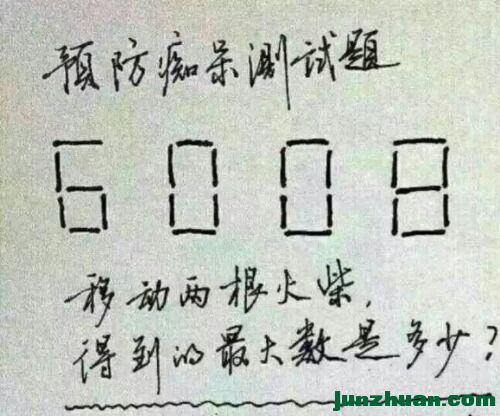 预防痴呆测试题
6008
移动两根火柴,
得到的最大数是多少?
junzhuan.com